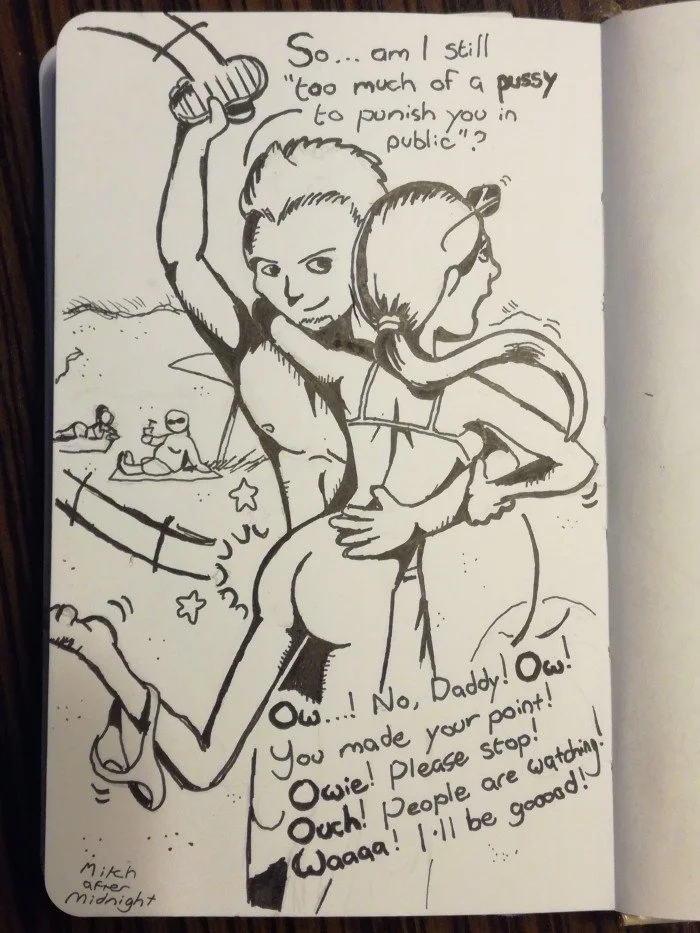 So... am I still
"too much of a pussy
to punish you in
public"?
Ow...! No, Daddy! Ow!
You made your point!
Owie! Please stop!
Ouch! People are watching!
Waaaa! I'll be gooood!
Mitch
after
Midnight